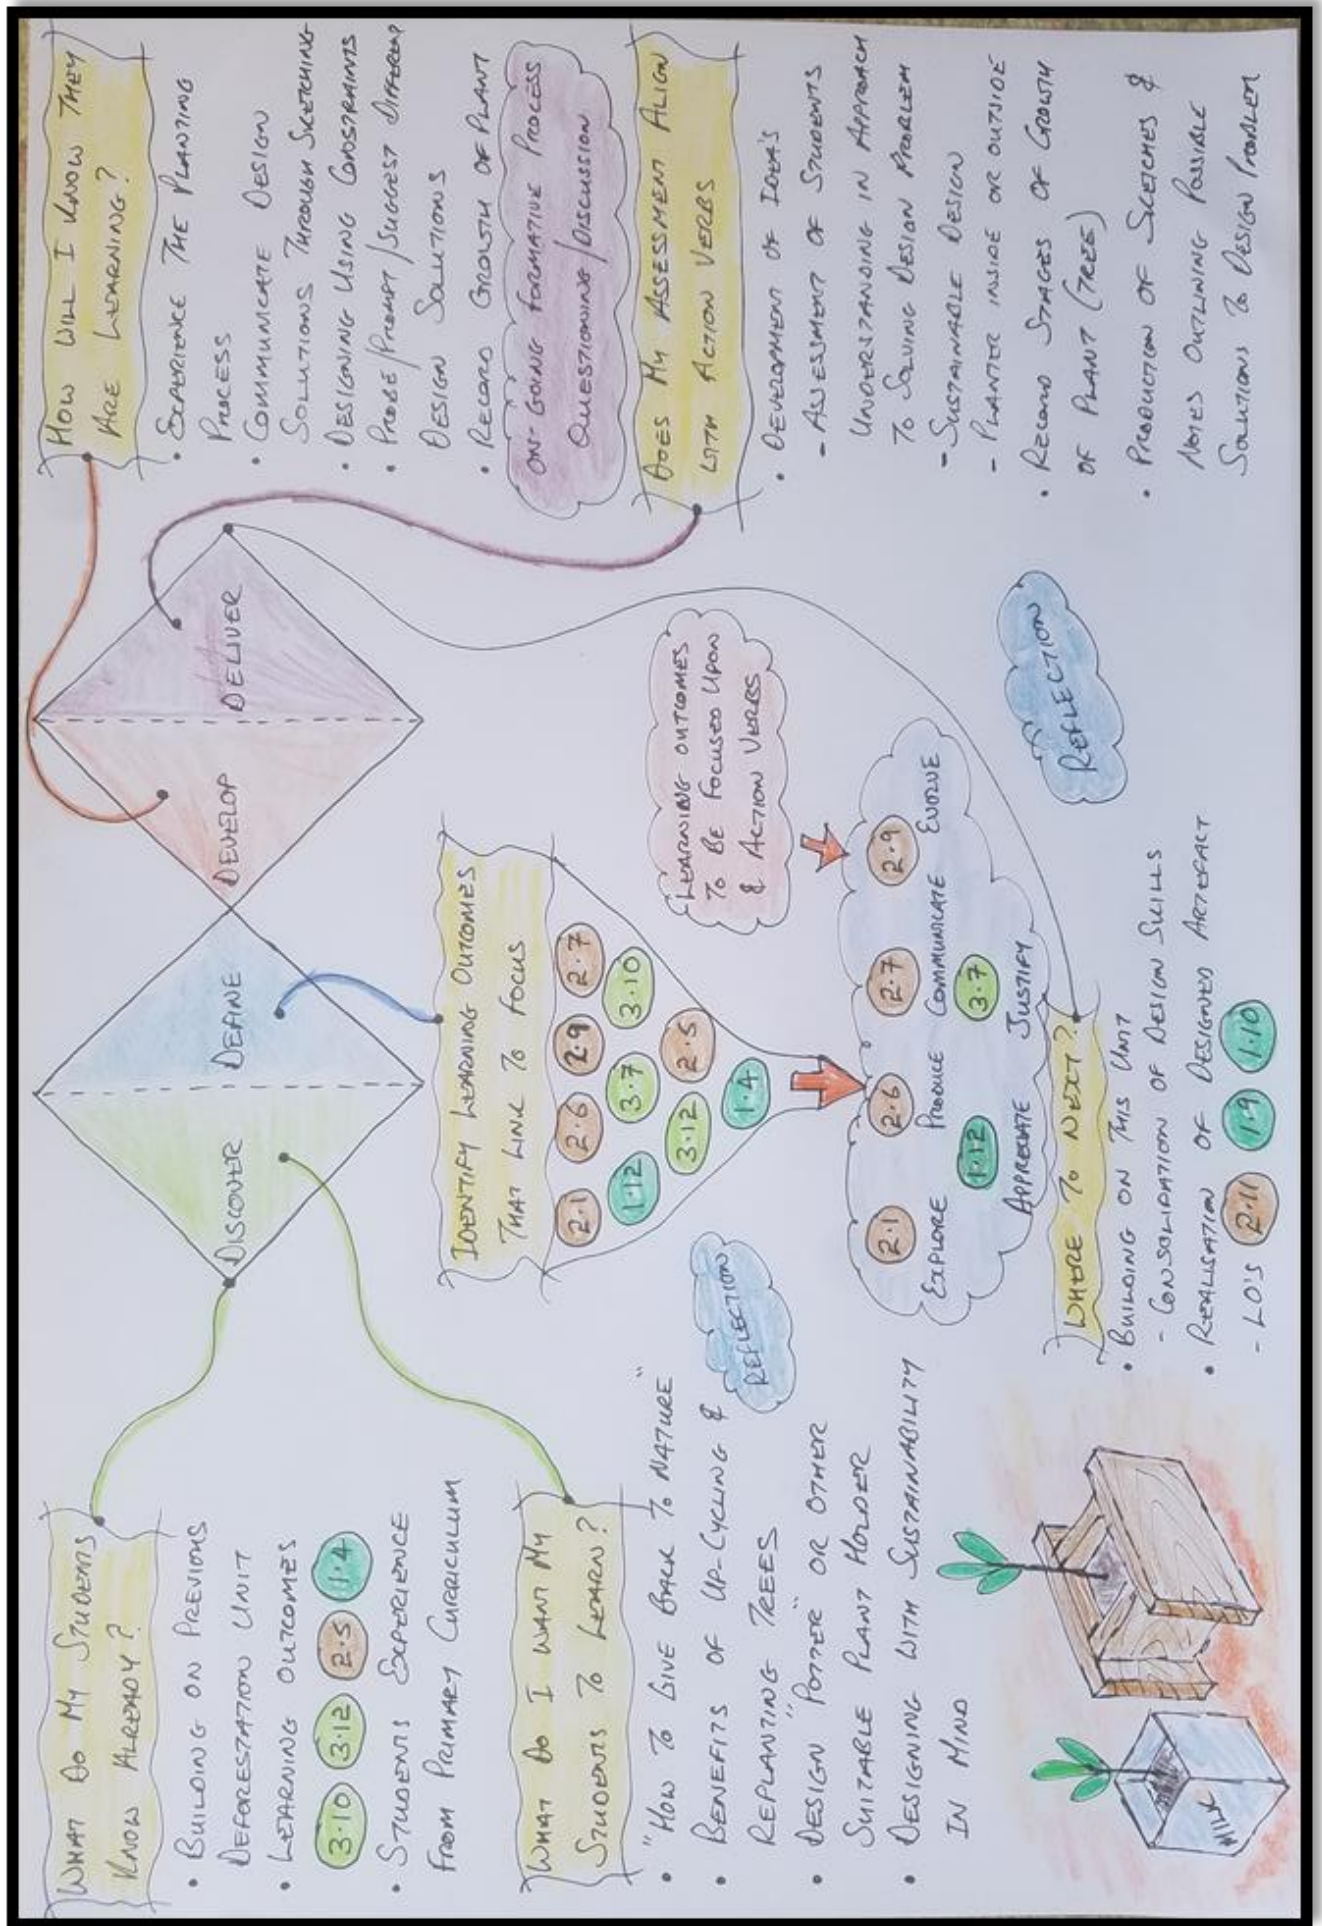 WHAT DO MY STUDENTS
KNOW ALREADY?
• BUILDING ON PREVIOUS
DEFORESTATION UNIT
• LEARNING OUTCOMES
3.10 3.12 2.5 1.4
• STUDENTS EXPERIENCE
FROM PRIMARY CURRICULUM
WHAT DO I WANT MY
STUDENTS TO LEARN?
• "HOW TO GIVE BACK TO NATURE"
• BENEFITS OF UP-CYCLING &
REPLANTING TREES
• DESIGN "POTTER" OR OTHER
SUITABLE PLANT HOLDER
• DESIGNING WITH SUSTAINABILITY
IN MIND
MILK
REFLECTION
DISCOVER
DEFINE
DEVELOP
DELIVER
IDENTIFY LEARNING OUTCOMES
THAT LINK TO FOCUS
2.1 2.6 2.9 2.7
1.12 3.7 3.10
3.12 2.5
1.4
LEARNING OUTCOMES
TO BE FOCUSED UPON
& ACTION VERBS
2.1 2.6 2.7 2.9
EXPLORE PRODUCE COMMUNICATE EVOLVE
1.12 3.7
APPRECIATE JUSTIFY
WHERE TO NEXT?
• BUILDING ON THIS UNIT
- CONSOLIDATION OF DESIGN SKILLS
• REALISATION OF DESIGNED ARTEFACT
- LO'S 2.11 1.9 1.10
REFLECTION
HOW WILL I KNOW THEY
ARE LEARNING?
• EXPERIENCE THE PLANTING
PROCESS
• COMMUNICATE DESIGN
SOLUTIONS THROUGH SKETCHING
• DESIGNING USING CONSTRAINTS
• PROBE/PROMPT/SUGGEST DIFFERENT
DESIGN SOLUTIONS
• RECORD GROWTH OF PLANT
ON-GOING FORMATIVE PROCESS
QUESTIONING/DISCUSSION
DOES MY ASSESSMENT ALIGN
WITH ACTION VERBS
• DEVELOPMENT OF IDEA'S
- ASSESSMENT OF STUDENTS
UNDERSTANDING IN APPROACH
TO SOLVING DESIGN PROBLEM
- SUSTAINABLE DESIGN
- PLANTER INSIDE OR OUTSIDE
• RECORD STAGES OF GROWTH
OF PLANT (TREE)
• PRODUCTION OF SKETCHES &
NOTES OUTLINING POSSIBLE
SOLUTIONS TO DESIGN PROBLEM